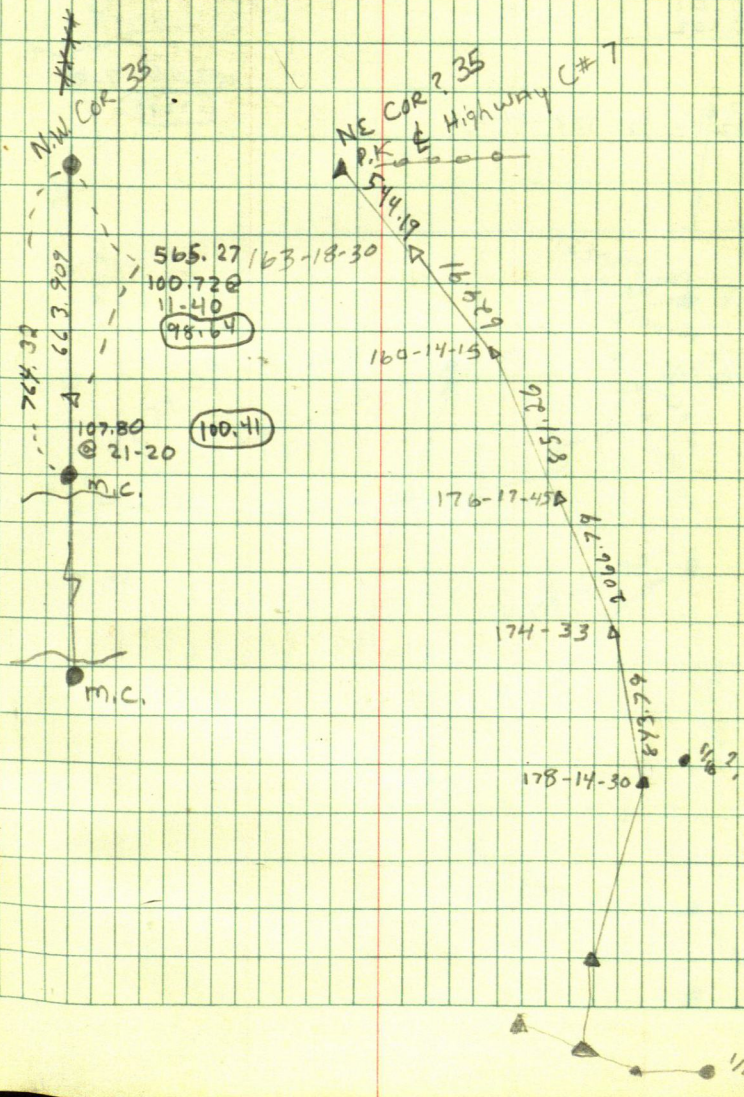 N.W. COR 35
663.909
764.32
565.27
100.72@
11-40
98.64
107.80
@ 21-20
100.41
m.c.
m.c.
NE COR ? 35
P.K.
Highway C# 7
544.19
163-18-30
160-14-15
851.26
176-17-45
2066.79
174-33
843.79
178-14-30